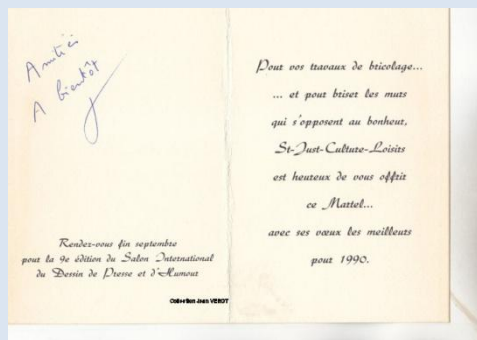 Amitiés
A bientôt
Rendez-vous fin septembre
pour la 9e édition du Salon International
du Dessin de Presse et d'Humour
Collection Jean VEROT
Pour vos travaux de bricolage...
... et pour briser les murs
qui s'opposent au bonheur,
St-Just-Culture-Loisirs
est heureux de vous offrir
ce Martel...
avec ses vœux les meilleurs
pour 1990.